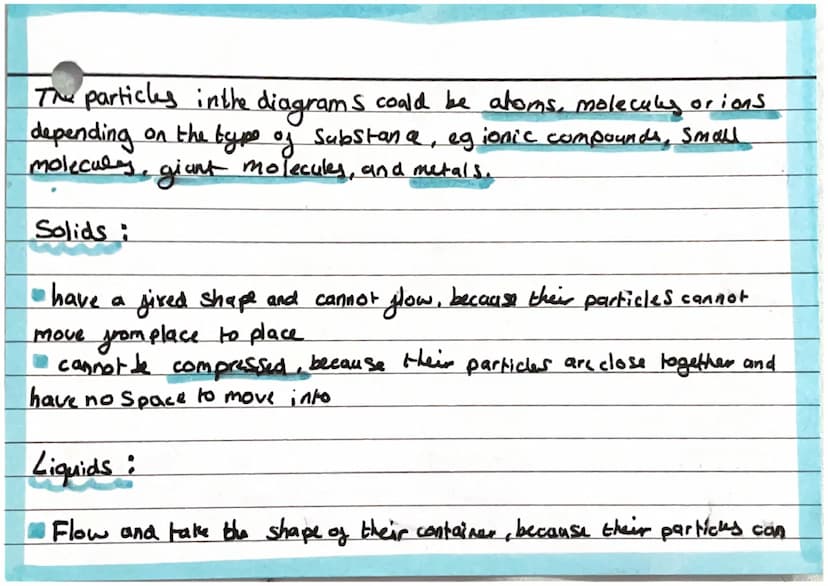 The particles in the diagrams could be atoms, molecules or ions
depending on the type of substance, eg ionic compounds, small
molecules, giant molecules, and metals.
Solids :
have a fixed shape and cannot flow, because their particles cannot
move from place to place
cannot be compressed, because their particles are close together and
have no space to move into
Liquids :
Flow and take the shape of their container, because their particles can